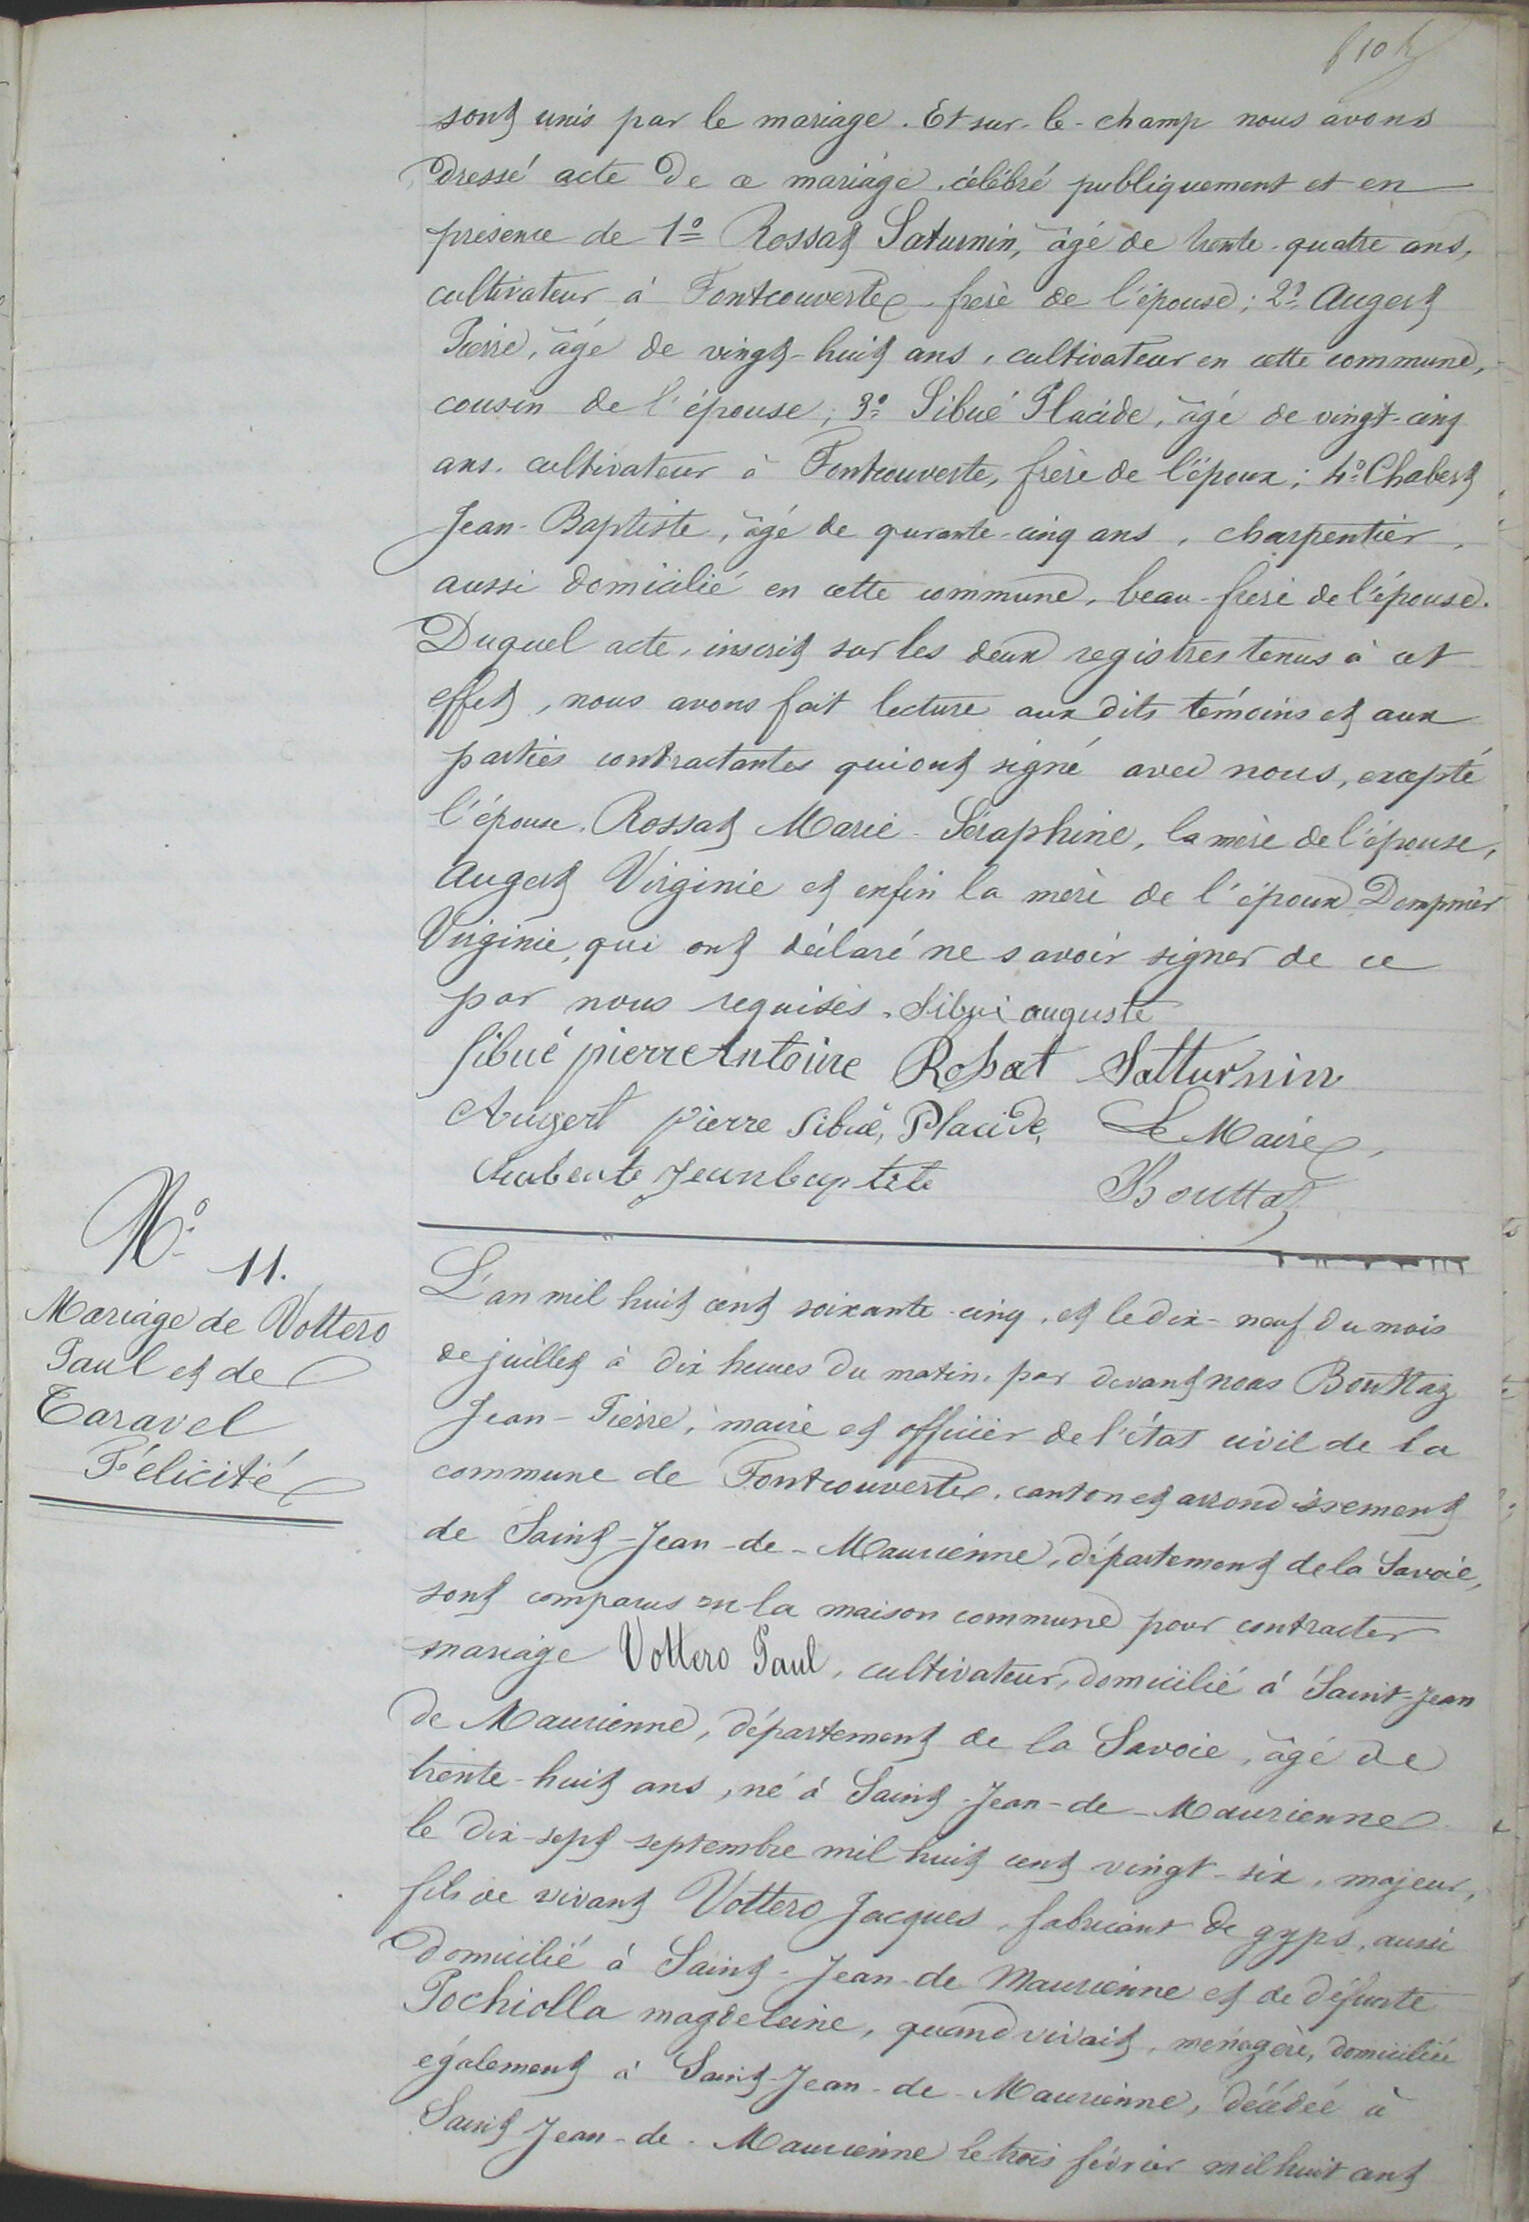 sont unis par le mariage. Et sur-le-champ nous avons
dressé acte de ce mariage, célébré publiquement et en
présence de 1º Rossat Saturnin, âgé de trente-quatre ans,
cultivateur à Fontcouverte, frère de l'épouse; 2º Augert
Pierre, âgé de vingt-huit ans, cultivateur en cette commune,
cousin de l'épouse; 3º Sibué Placide, âgé de vingt-cinq
ans, cultivateur à Fontcouverte, frère de l'époux; 4º Chabert
Jean-Baptiste, âgé de qurante-cinq ans, charpentier,
aussi domicilié en cette commune, beau-frère de l'épouse.
Duquel acte, inscrit sur les deux registres tenus à cet
effet, nous avons fait lecture aux dits témoins et aux
parties contractantes qui ont signé avec nous, excepté
l'épouse, Rossat Marie-Séraphine, la mère de l'épouse,
Augert Virginie et enfin la mère de l'époux Dompnier
Virginie, qui ont déclaré ne savoir signer de ce
par nous requises. Sibué auguste
Sibué pierre Antoine Rossat Satturnin
Augert pierre Sibué, Placide, Le Maire,
chabente jeanbaptiste Bouttaz
Nº 11.
Mariage de Vottero
Paul et de
Taravel
Félicité
L'an mil huit cent soixante-cinq, et le dix-neuf du mois
de juillet à dix heures du matin, par devant nous Bouttaz
Jean-Pierre, maire et officier de l'état civil de la
commune de Fontcouverte, canton et arrondissement
de Saint-Jean-de-Maurienne, département de la Savoie,
sont comparus en la maison commune pour contracter
mariage Vottero Paul, cultivateur, domicilié à Saint-Jean
de Maurienne, département de la Savoie, âgé de
trente-huit ans, né à Saint-Jean-de-Maurienne
le dix-sept septembre mil huit cent vingt-six, majeur,
fils de vivant Vottero Jacques, fabricant de gyps, aussi
domicilié à Saint-Jean-de Maurienne et de défunte
Pochiolla magdeleine, quand vivait, ménagère, domiciliée
également à Saint-Jean-de-Maurienne, décédée à
Saint Jean-de-Maurienne le trois février mil huit cent